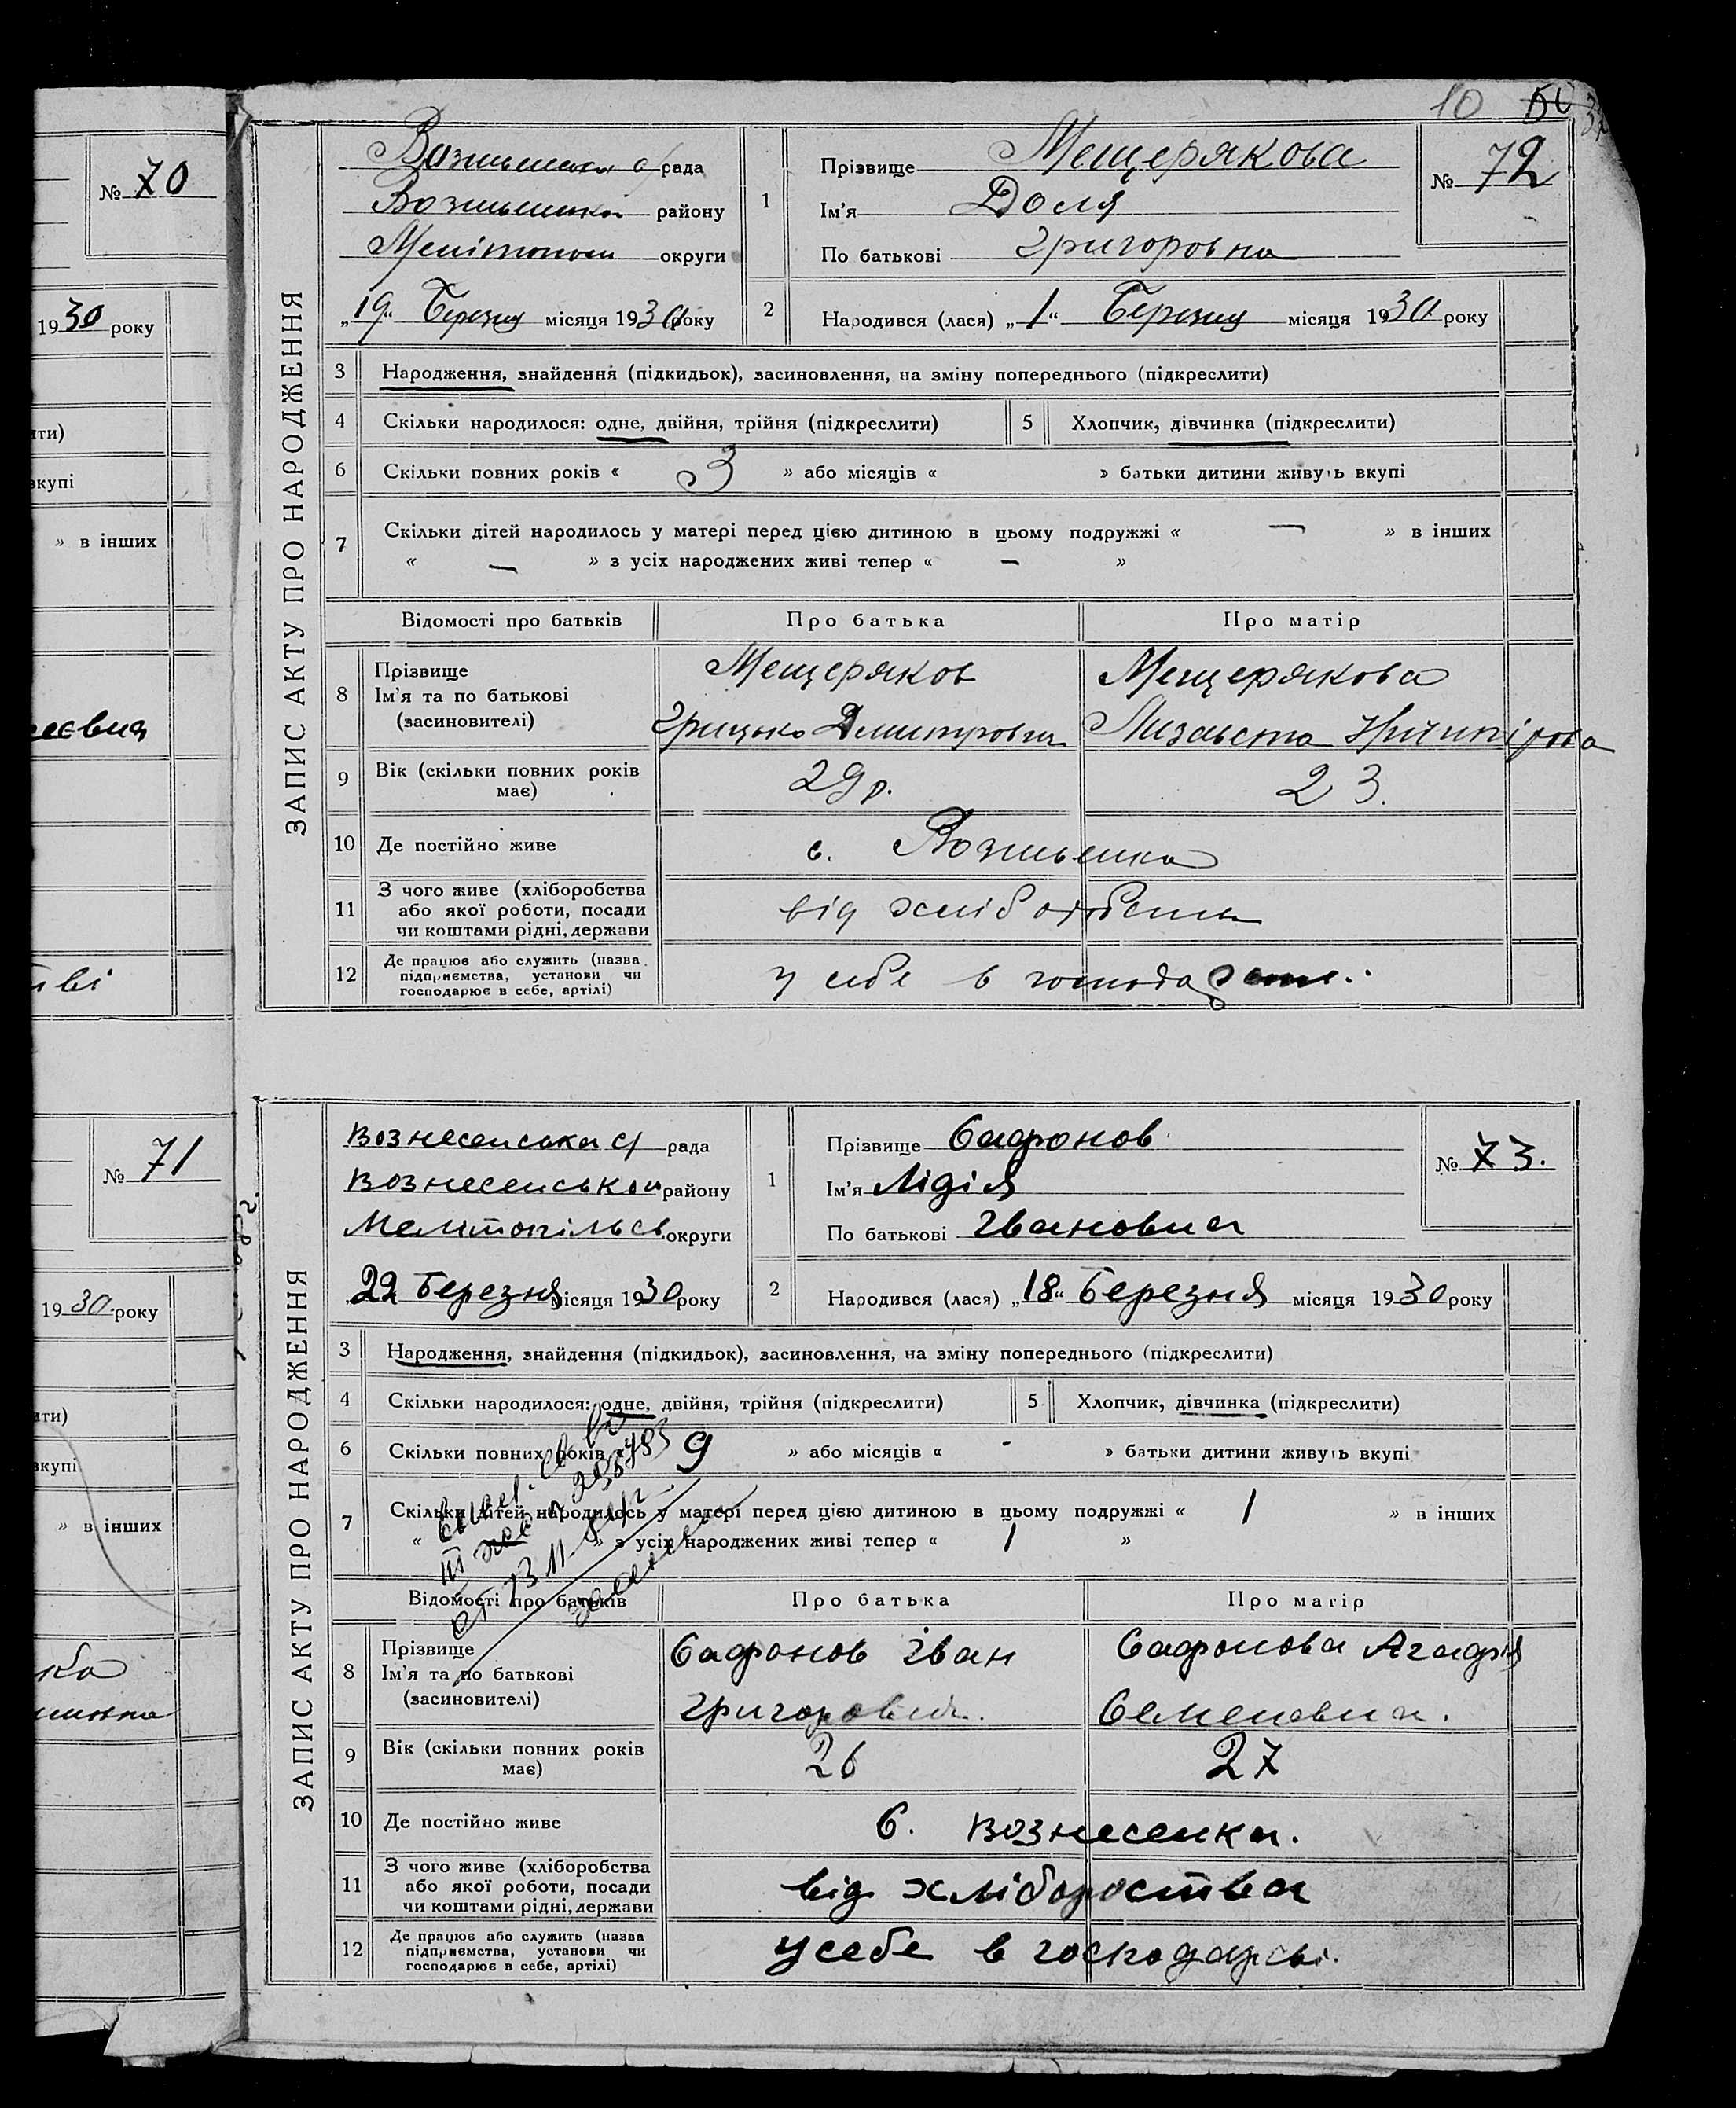 10 50
№ 70
1930 року
ити)
вкупі
» в інших
№ 71
1930 року
ити)
вкупі
» в інших
ЗАПИС АКТУ ПРО НАРОДЖЕННЯ
рада
району
округи
„19“ Березня місяця 1930 року
1
Прізвище Мещерякова
Ім'я Доля
По батькові Григоровна
№ 72
2
Народився (лася) „1“ Березня місяця 1930 року
3 Народження, знайдення (підкидьок), засиновлення, на зміну попереднього (підкреслити)
4 Скільки народилося: одне, двійня, трійня (підкреслити)
5 Хлопчик, дівчинка (підкреслити)
6 Скільки повних років « 3 » або місяців « » батьки дитини живуть вкупі
7 Скільки дітей народилось у матері перед цією дитиною в цьому подружжі « — » в інших
« — » з усіх народжених живі тепер « — »
Відомості про батьків Про батька Про матір
8 Прізвище
Ім'я та по батькові
(засиновителі)
Мещеряков
Грицько Дмитрович
Мещерякова
Лизавета
9 Вік (скільки повних років має)
29 р.
23.
10 Де постійно живе
с.
11 З чого живе (хліборобства
або якої роботи, посади
чи коштами рідні, держави
від
12 Де працює або служить (назва
підприємства, установи чи
господарює в себе, артілі)
у себе в
ЗАПИС АКТУ ПРО НАРОДЖЕННЯ
Вознесенська с/ рада
Вознесенськои району
Мелітопільсь округи
22 Березня місяця 1930 року
1
Прізвище Сафонов
Ім'я Лідія
По батькові Івановна
№ 73.
2
Народився (лася) „18“ Березня місяця 1930 року
3 Народження, знайдення (підкидьок), засиновлення, на зміну попереднього (підкреслити)
4 Скільки народилося: одне, двійня, трійня (підкреслити)
5 Хлопчик, дівчинка (підкреслити)
6 Скільки повних років « 9 » або місяців « - » батьки дитини живуть вкупі
7 Скільки дітей народилось у матері перед цією дитиною в цьому подружжі « 1 » в інших
« » з усіх народжених живі тепер « 1 »
Відомості про батьків Про батька Про матір
8 Прізвище
Ім'я та по батькові
(засиновителі)
Сафонов Іван
Григорович.
Сафонова Агафія
Семеновна.
9 Вік (скільки повних років має)
26
27
10 Де постійно живе
С. Вознесенка.
11 З чого живе (хліборобства
або якої роботи, посади
чи коштами рідні, держави
від хлібороства
12 Де працює або служить (назва
підприємства, установи чи
господарює в себе, артілі)
у себе в господарсві.